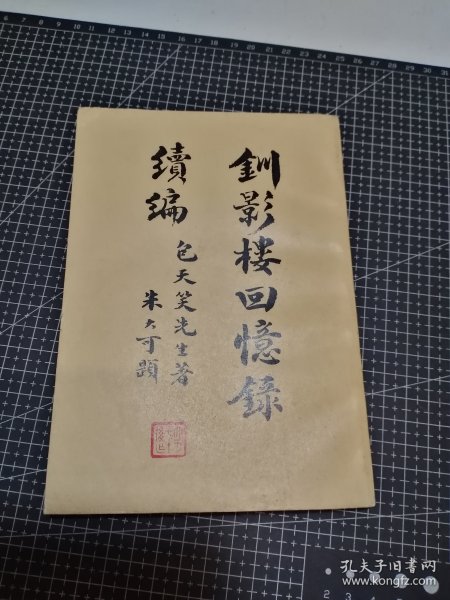 釧影樓回憶錄
續編
包天笑先生著
朱大可題
孔夫子旧书网
www.kongfz.com